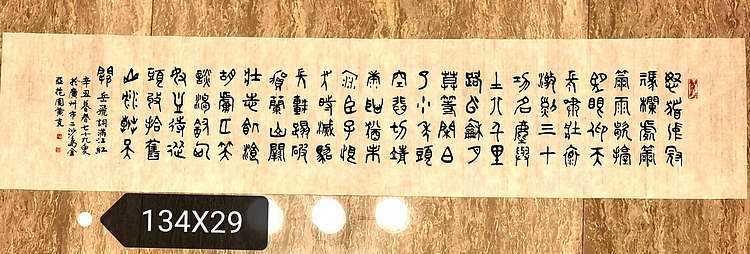 怒髮沖冠
憑欄處蕭
蕭雨歇擡
望眼仰天
長嘯壯懷
激烈三十
功名塵與
土八千里
路雲和月
莫等閒白
了少年頭
空悲切靖
康恥猶未
雪臣子恨
何時滅駕
長車踏破
賀蘭山闕
壯志飢餐
胡虜肉笑
談渴飲匈
奴血待從
頭收拾舊
山河朝天
闕 岳飛詞滿江紅
辛丑暮春七十九叟
於廣州市二沙島金
亞花園黃
134X29